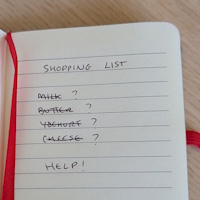 SHOPPING LIST
MILK ?
BUTTER ?
YOGHURT ?
CHEESE ?
HELP!